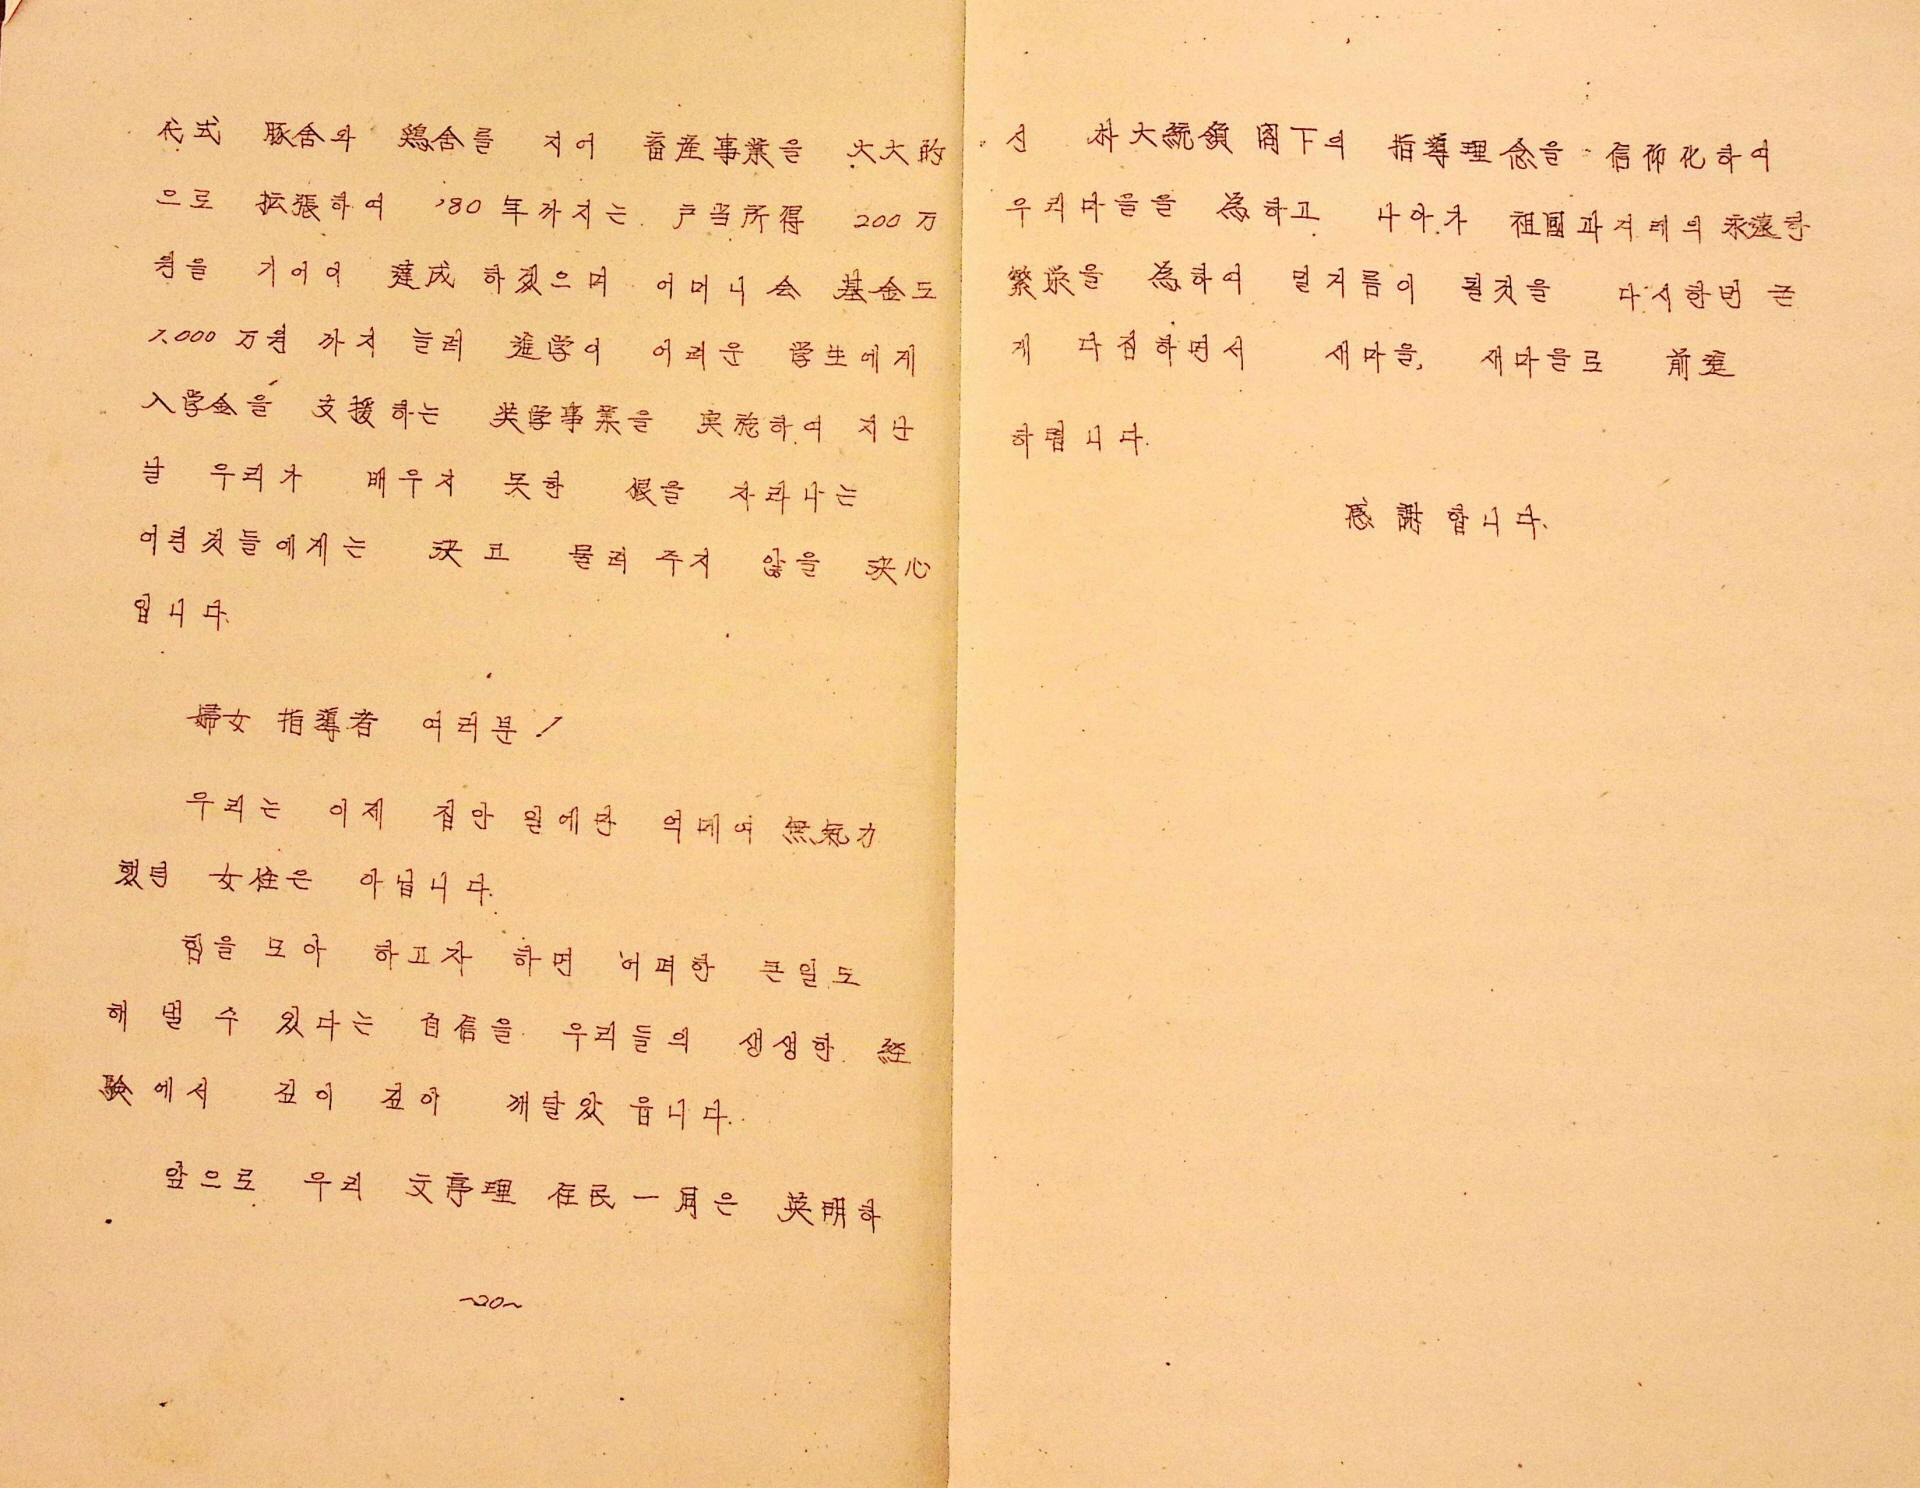 代式 豚舍와 鷄舍를 지어 畜産事業을 大大的
으로 拡張하여 '80年까지는 戶当所得 200万
원을 기어이 達成 하겠으며 어머니会 基金도
1,000万원 까지 늘려 進学이 어려운 学生에게
入学金을 支援하는 奖学事業을 実施하여 지난
날 우리가 배우지 못한 恨을 자라나는
어린것들에게는 決코 물려 주지 않을 決心
입니다.
婦女 指導者 여러분!
우리는 이제 집안 일에만 억메여 無氣力
했던 女性은 아닙니다.
힘을 모아 하고자 하면 어떠한 큰일도
해 낼 수 있다는 自信을 우리들의 생생한 経
験에서 깊이 깊이 깨달았읍니다.
앞으로 우리 文亭理 住民一同은 英明하
~20~
신 朴大統領 閣下의 指導理念을 信仰化하여
우리마을을 為하고 나아가 祖國과겨레의 永遠한
繁栄을 為하여 밑거름이 될것을 다시한번 굳
게 다짐하면서 새마을, 새마을로 前進
하렵니다.
感謝합니다.